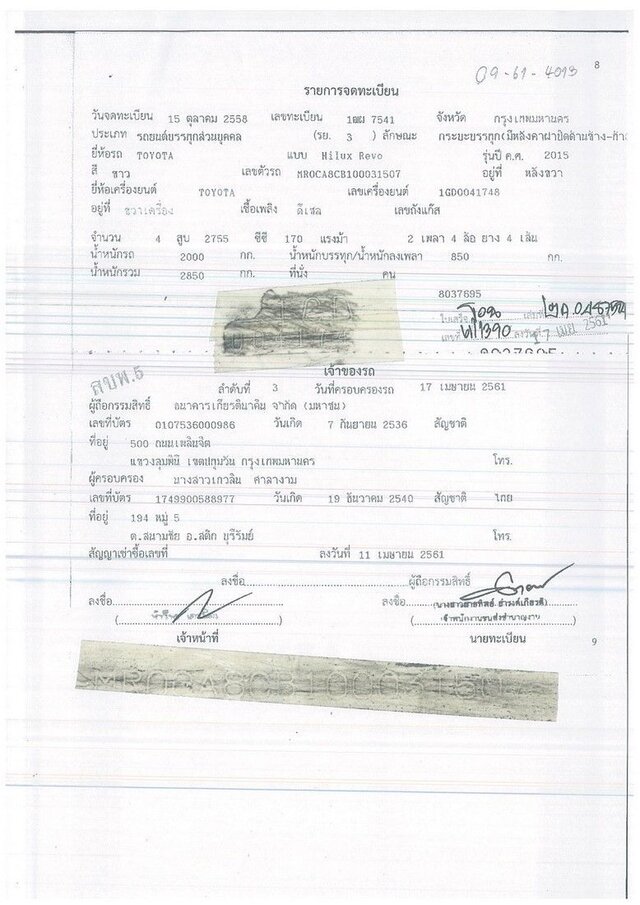 8
09-61-4013
รายการจดทะเบียน
วันจดทะเบียน 15 ตุลาคม 2558 เลขทะเบียน 1ฒผ 7541 จังหวัด กรุงเทพมหานคร
ประเภท รถยนต์บรรทุกส่วนบุคคล (รย. 3 ) ลักษณะ กระบะบรรทุก(มีหลังคาฝาปิดด้านข้าง-ท้าย
ยี่ห้อรถ TOYOTA แบบ Hilux Revo รุ่นปี ค.ศ. 2015
สี ขาว เลขตัวรถ MROCA8CB100031507 อยู่ที่ หลังขวา
ยี่ห้อเครื่องยนต์ TOYOTA เลขเครื่องยนต์ 1GD0041748
อยู่ที่ ขวาเครื่อง เชื้อเพลิง ดีเซล เลขถังแก๊ส
จำนวน 4 สูบ 2755 ซีซี 170 แรงม้า 2 เพลา 4 ล้อ ยาง 4 เส้น
น้ำหนักรถ 2000 กก. น้ำหนักบรรทุก/น้ำหนักลงเพลา 850 กก.
น้ำหนักรวม 2850 กก. ที่นั่ง คน
8037695
ใบเสร็จ โอน เล่มที่
เลขที่ 61390 ลงวันที่ 17 เมย 2561
8037695
สบพ.5
เจ้าของรถ
ลำดับที่ 3 วันที่ครอบครองรถ 17 เมษายน 2561
ผู้ถือกรรมสิทธิ์ ธนาคารเกียรตินาคิน จำกัด (มหาชน)
เลขที่บัตร 0107536000986 วันเกิด 7 กันยายน 2536 สัญชาติ
ที่อยู่ 500 ถนนเพลินจิต
แขวงลุมพินี เขตปทุมวัน กรุงเทพมหานคร โทร.
ผู้ครอบครอง นางสาวเกวลิน ศาลางาม
เลขที่บัตร 1749900588977 วันเกิด 19 ธันวาคม 2540 สัญชาติ ไทย
ที่อยู่ 194 หมู่ 5
ต.สนามชัย อ.สตึก บุรีรัมย์ โทร.
สัญญาเช่าซื้อเลขที่ ลงวันที่ 11 เมษายน 2561
ลงชื่อ ผู้ถือกรรมสิทธิ์
ลงชื่อ ลงชื่อ
เจ้าหน้าที่ นายทะเบียน
9
MROCA8CB10003150